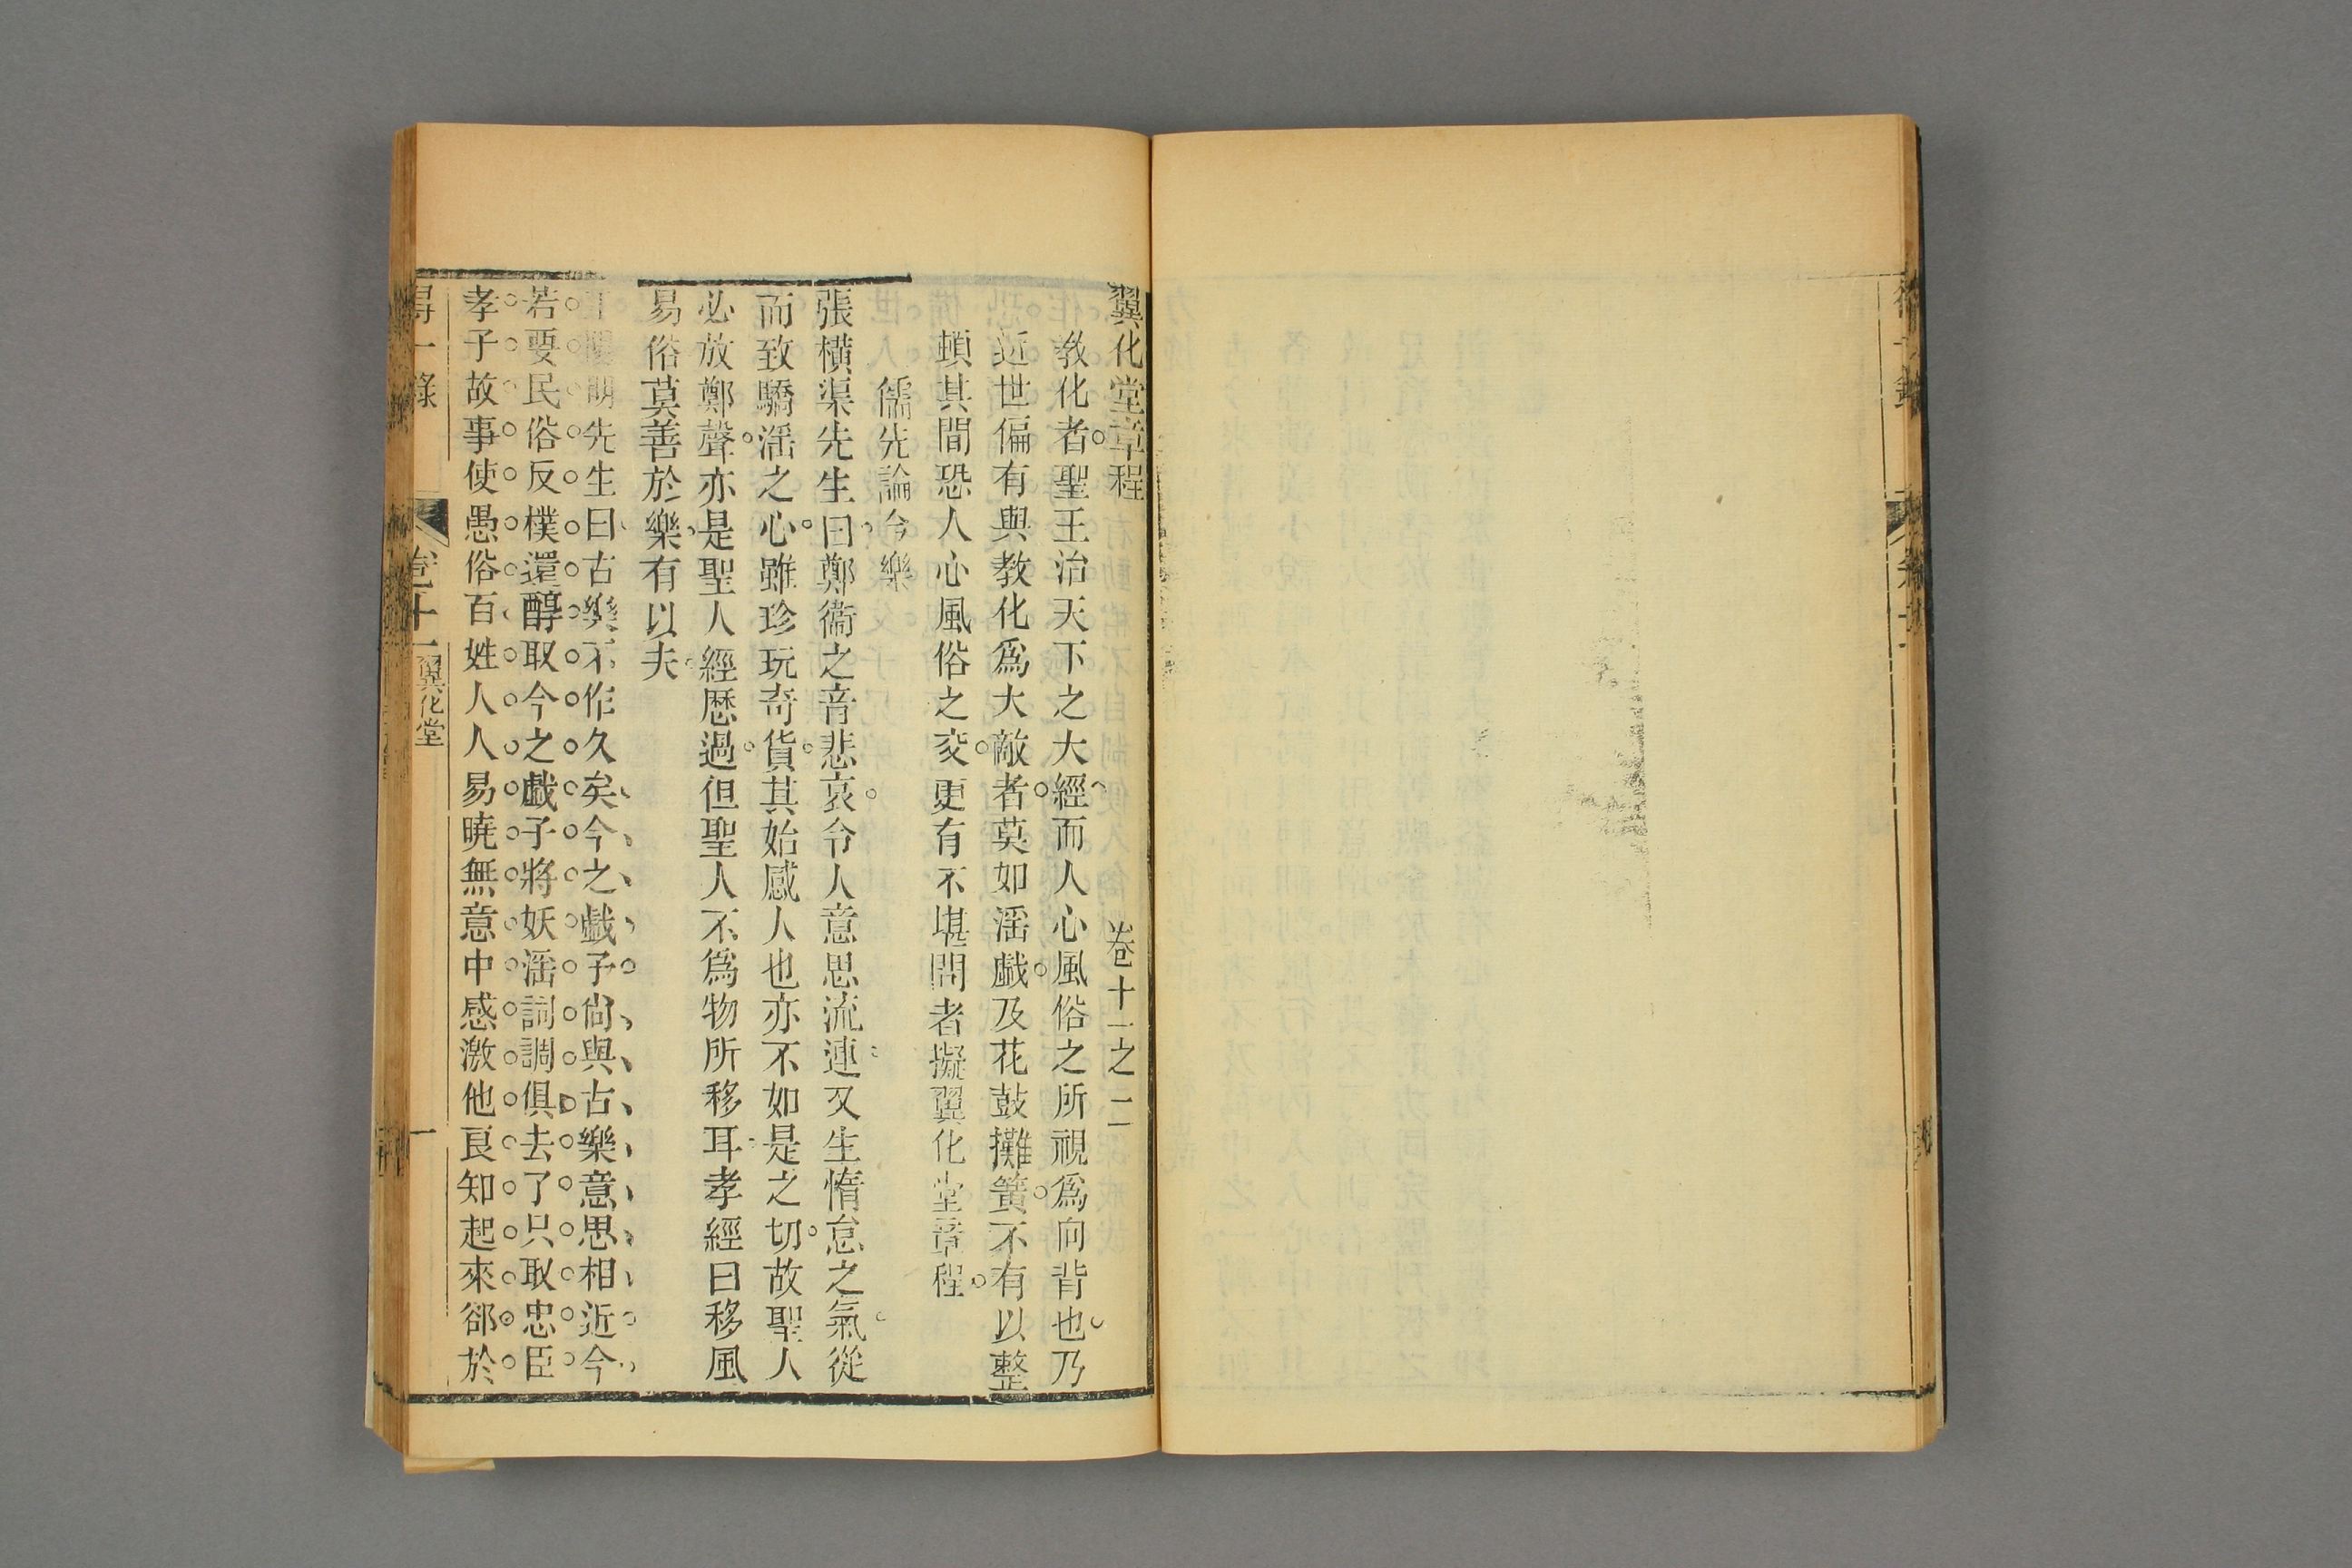 翼化堂章程　卷十一之二
教化者聖王治天下之大經而人心風俗之所視爲向背也乃
近世偏有與教化爲大敵者莫如滛戯及花鼓攤簧不有以整
頓其間恐人心風俗之変更有不堪問者擬翼化堂章程
儒先論今樂
張橫渠先生曰鄭衞之音悲哀令人意思流連又生惰怠之氣從
而致驕滛之心雖珍玩奇貨其始感人也亦不如是之切故聖人
必放鄭聲亦是聖人經歷過但聖人不爲物所移耳孝經曰移風
易俗莫善於樂有以夫
陽明先生曰古樂不作久矣今之戯子尙與古樂意思相近今
若要民俗反樸還醇取今之戯子將妖滛詞調俱去了只取忠臣
孝子故事使愚俗百姓人人易曉無意中感激他良知起來卻於
得一錄　卷十一　翼化堂　一